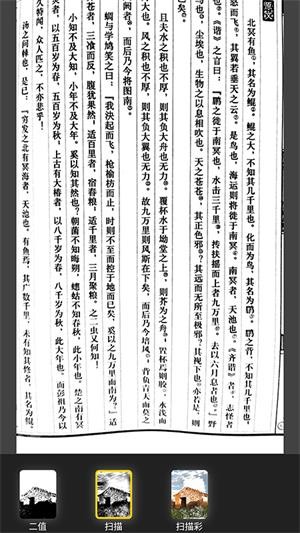 原文
北冥有鱼，其名为鲲。鲲之大，不知其几千里也。化而为鸟，其名为鹏。鹏之背，不知其几千里也，
怒而飞，其翼若垂天之云。是鸟也，海运则将徙于南冥。南冥者，天池也。《齐谐》者，志怪者
也。《谐》之言曰：“鹏之徙于南冥也，水击三千里，抟扶摇而上者九万里，去以六月息者也。”野
马也，尘埃也，生物之以息相吹也。天之苍苍，其正色邪？其远而无所至极邪？其视下也，亦若是，则
已矣。
且夫水之积也不厚，则其负大舟也无力。覆杯水于坳堂之上，则芥为之舟。置杯焉则胶，水浅而
大也。风之积也不厚，则其负大翼也无力。故九万里则风斯在下矣，而后乃今培风；背负青天而莫之
者，而后乃今将图南。
蜩与学鸠笑之曰：“我决起而飞，枪榆枋而止，时则不至而控于地而已矣，奚以之九万里而南为？”适
苍者，三飡而反，腹犹果然，适百里者，宿舂粮，适千里者，三月聚粮。之二虫又何知！
小知不及大知，小年不及大年。奚以知其然也？朝菌不知晦朔，蟪蛄不知春秋，此小年也。楚之南有冥
者，以五百岁为春，五百岁为秋，上古有大椿者，以八千岁为春，八千岁为秋，此大年也。而彭祖乃今以
久特闻，众人匹之，不亦悲乎！
汤之问棘也，是已：“穷发之北有冥海者，天池也。有鱼焉，其广数千里，未有知其修者，其名为鲲。
二值
扫描
扫描彩